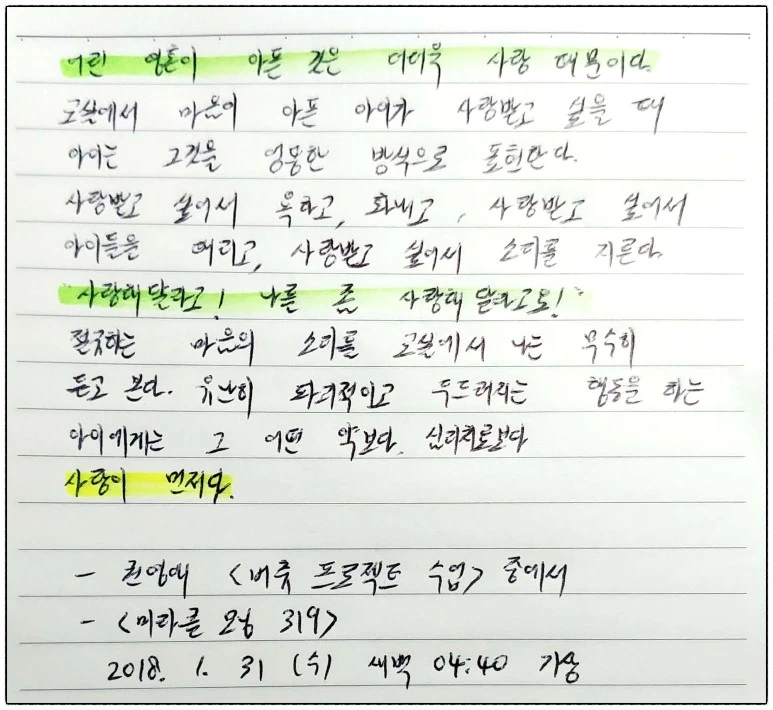 어린 영혼이 아픈 것은 더더욱 사랑 때문이다.
교실에서 마음이 아픈 아이가 사랑받고 싶을 때
아이는 그것을 엉뚱한 방식으로 표현한다.
사랑받고 싶어서 욕하고, 화내고, 사랑받고 싶어서
아이들을 때리고, 사랑받고 싶어서 소리를 지른다.
"사랑해달라고! 나를 좀 사랑해달라고요!"
절규하는 마음의 소리를 교실에서 나는 무수히
듣고 본다. 유난히 파괴적이고 두드러지는 행동을 하는
아이에게는 그 어떤 약보다. 심리치료보다
사랑이 먼저다.
- 권영애 <버츄 프로젝트 수업> 중에서
- <미라클 모닝 319>
2018. 1. 31 (수) 새벽 04:40 기상